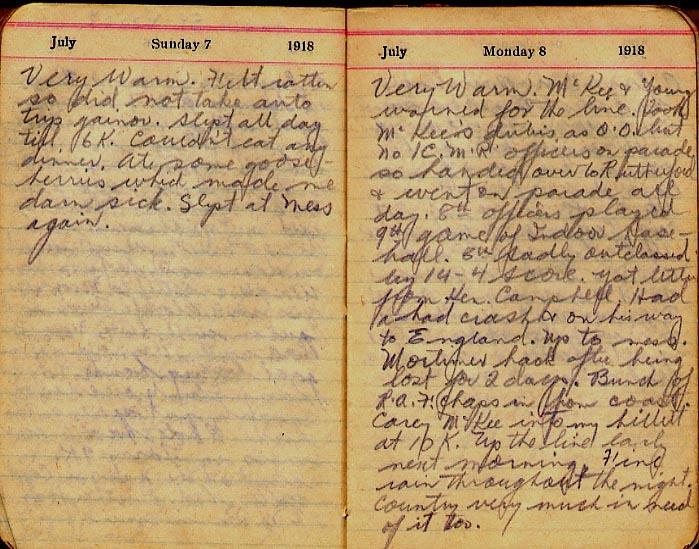 July Sunday 7 1918
Very Warm. Felt rotten
so did not take auto
trip gainor. Slept all day
till 6 K. Couldn't eat any
dinner. Ate some goose-
berries which made me
darn sick. Slept at Mess
again.
July Monday 8 1918
Very Warm. McKee & Young
warned for the line. Took
McKee's duties as O.O. but
no 1C.M.R. officers on parade
so handed over to Rutherford
& went on parade all
day. 8th officers played
9th game of Indoor base-
ball. 8th badly outclassed
by 14-4 score. Got letter
from Ken Campbell. Had
a bad crash on his way
to England. Up to mess.
Mortimer back after being
lost for 2 days. Bunch of
R.A.F. chaps in from coast.
Carey McKee into my billet
at 10 K. Up the line early
next morning. Fine
rain throughout the night.
Country very much in need
of it too.